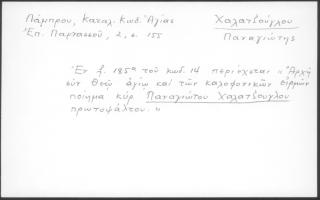 Λάμπρου, Καταλ. Κωδ. Ἁγίας
Χαλατζόγλου
Ἐπ. Παρνασσοῦ, 2, σ. 155
Παναγιώτης
Ἐν f. 185α τοῦ κωδ. 14 περιέχεται «Ἀρχὴ
σὺν Θεῷ ἁγίῳ καὶ τῶν καλοφωνικῶν εἱρμῶν
ποίημα κὺρ Παναγιώτου Χαλατζόγλου
πρωτοψάλτου.»